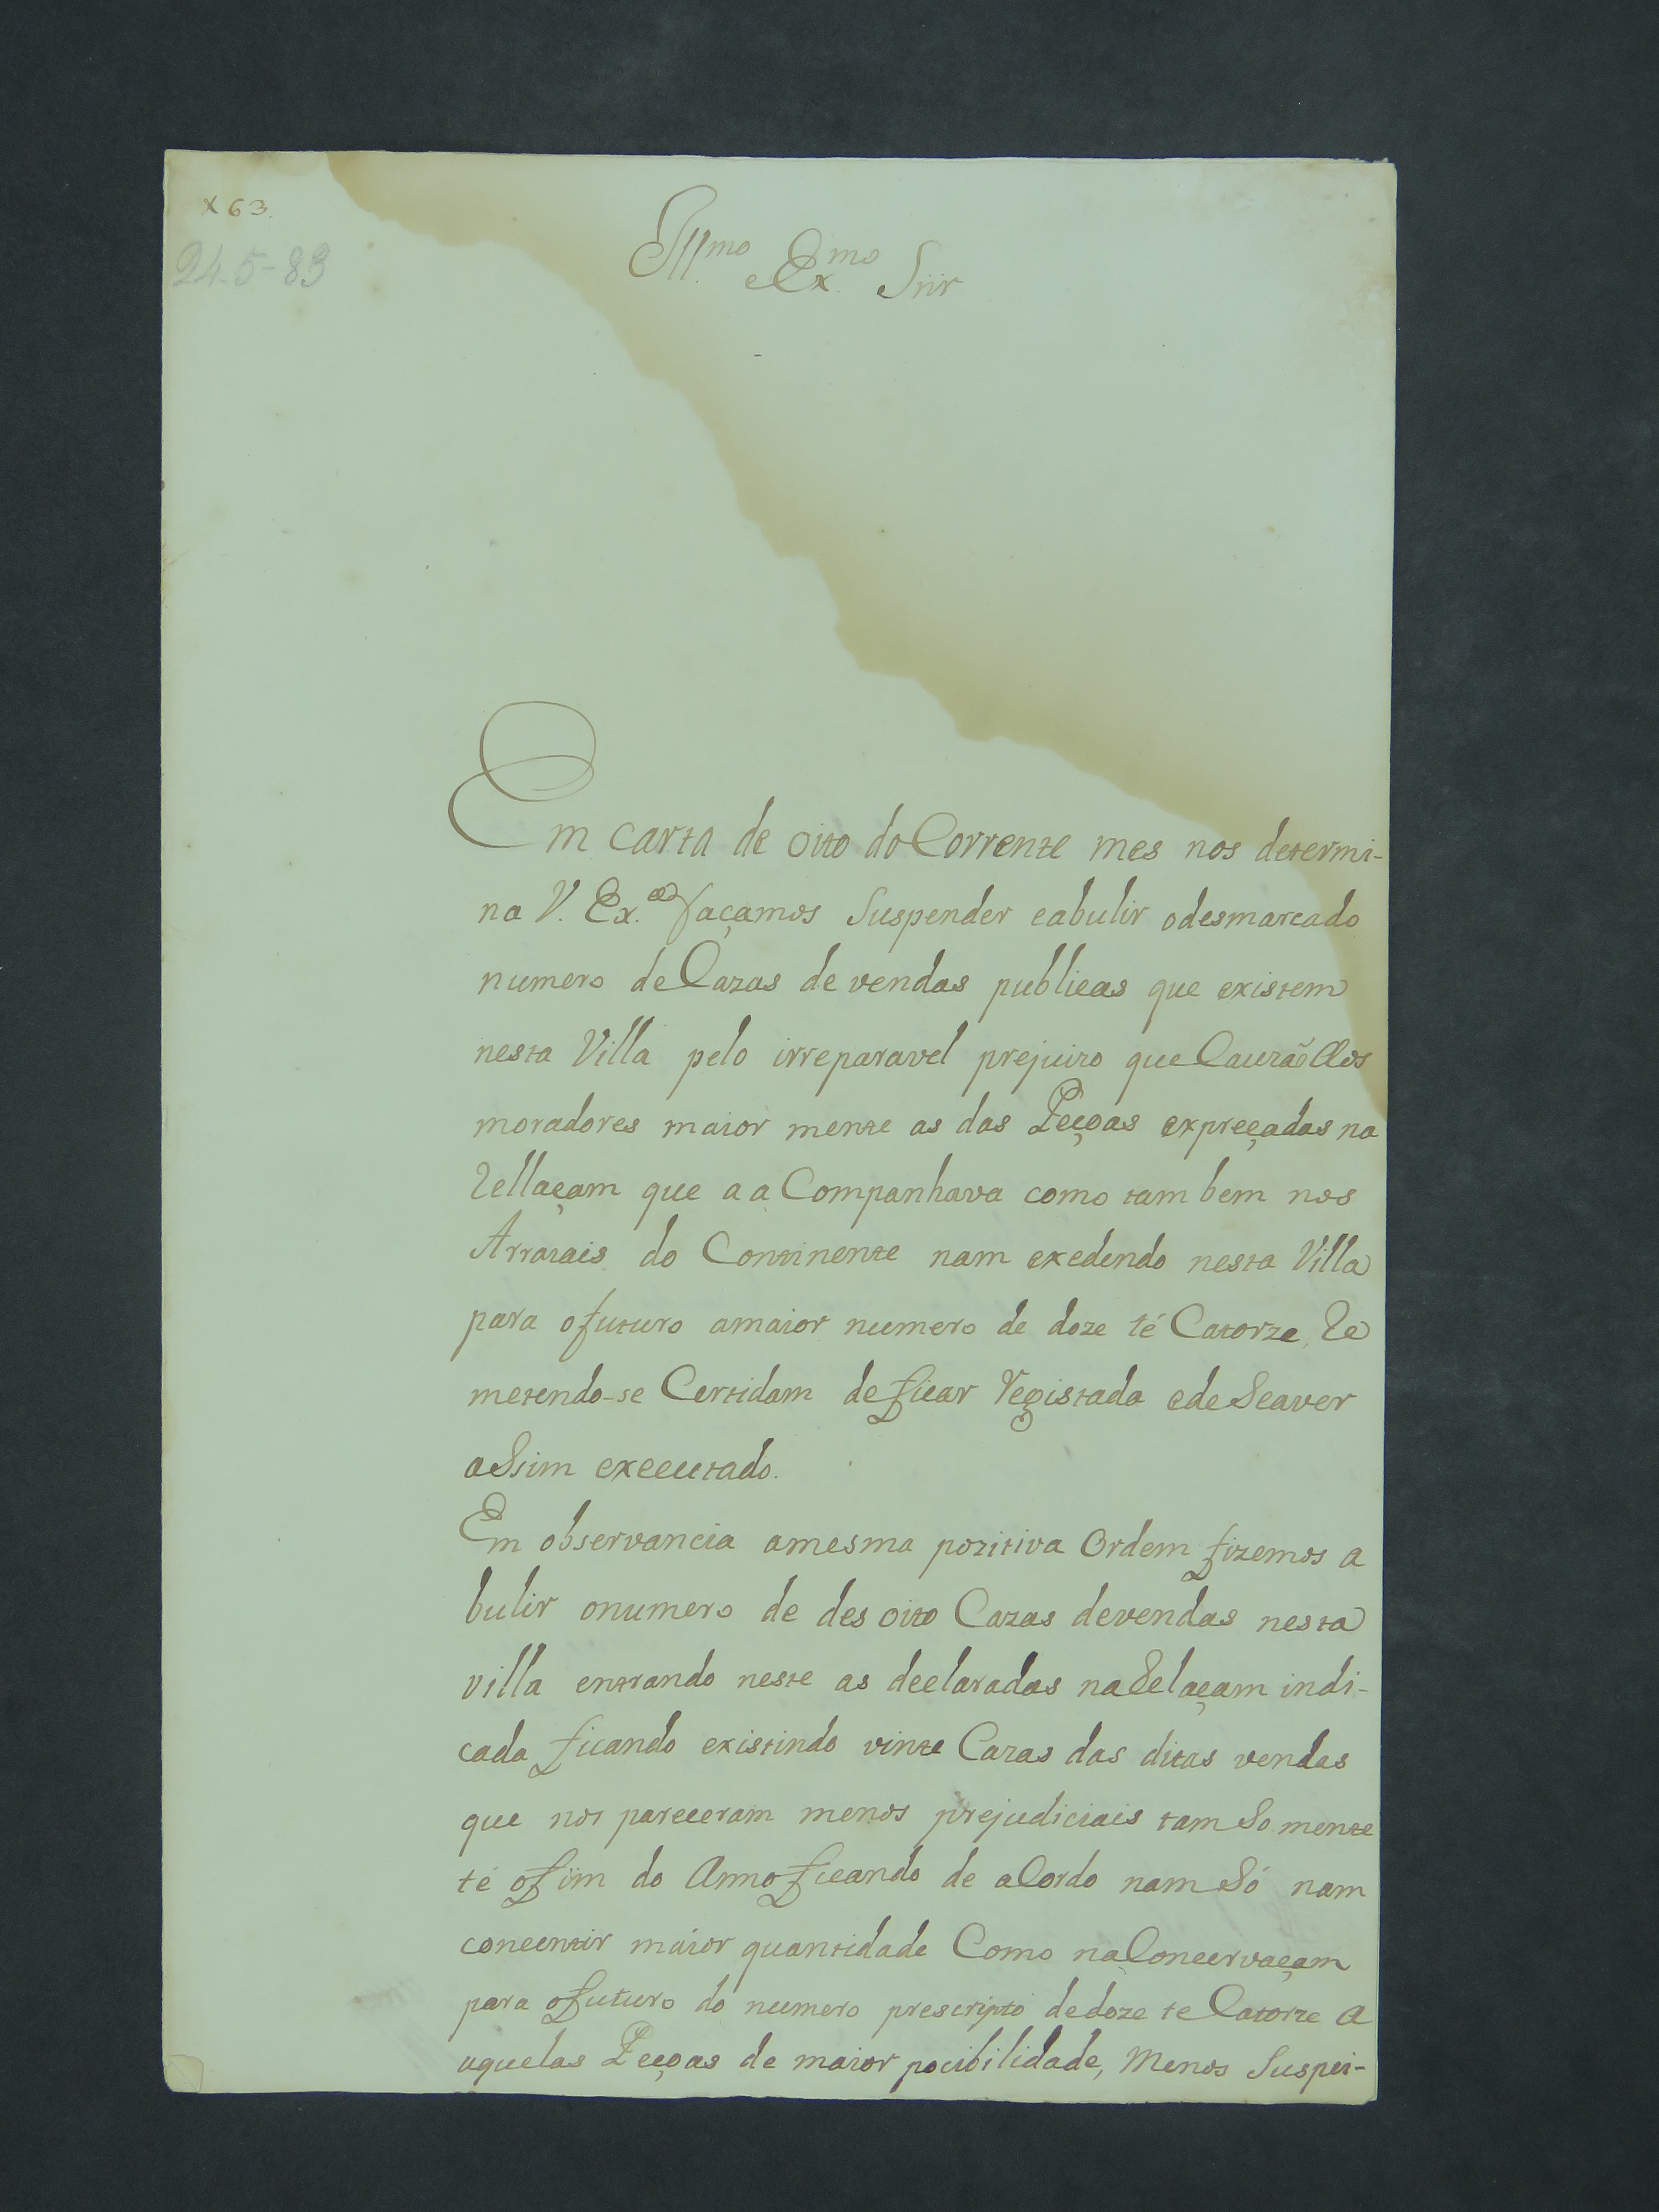 X 63.
24-5-83
Illmo e Exmo Snr
Em carta de oito do Corrente mes nos determi-
na V. Ex.ca façamos Suspender eabulir odesmarcado
numero de Cazas de vendas publicas que existem
nesta Villa pelo irreparavel prejuizo que Cauzaõ Aos
moradores maior mente as das Peçoas expreçadas na
Rellaçam que a a Companhava como tam bem nos
Arraiais do Continente nam exedendo nesta Villa
para ofuturo amaior numero de doze té Catorze, Re
metendo-se Certidam deficar Registada ede Seaver
aSsim executado.
Em observancia amesma pozitiva Ordem fizemos a
bulir onumero de des oito Cazas devendas nesta
villa entrando neste as declaradas naRelaçam indi-
cada ficando existindo vinte Cazas das ditas vendas
que nos pareceram menos prejudiciais tam So mente
té ofim do Anno ficando de aCordo nam Só nam
concentir maior quantidade Como naConcervaçam
para ofuturo do numero prescripto dedoze te Catorze a
aquelas Peçoas de maior pocibilidade, Menos Suspei-